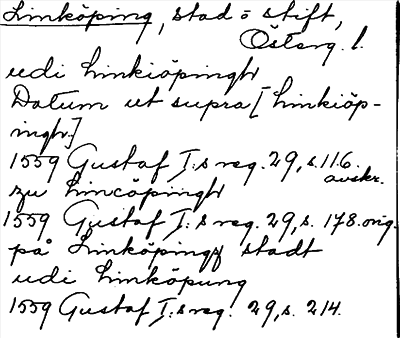 Linköping, stad o stift,
Österg. l.
udi Linkiöpingh
Datum ut supra [Linkiöp-
ingh.]
1559 Gustaf I:s reg. 29, s. 116.
avskr.
zu Lincöpingh
1559 Gustaf I:s reg. 29, s. 178. orig.
på Linköpings stadt
udi Linköpung
1559 Gustaf I:s reg. 29, s. 214.